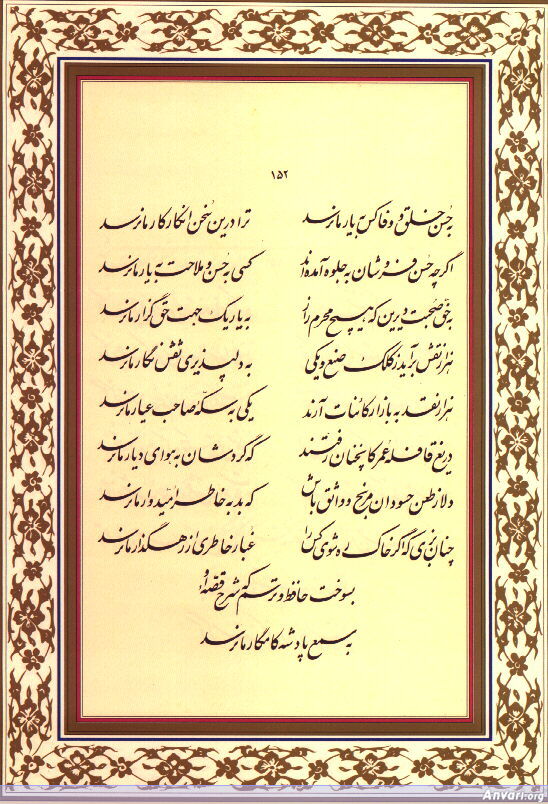 ۱۵۲
به حسن خلق و وفا کس به یار ما نرسد ترا درین سخن انکار کار ما نرسد
اگرچه حسن فروشان به جلوه آمده‌اند کسی به حسن و ملاحت به یار ما نرسد
به حق صحبت دیرین که هیچ محرم راز به یار یک جهت حق گزار ما نرسد
هزار نقش برآید ز کلک صنع و یکی به دلپذیری نقش نگار ما نرسد
هزار نقد به بازار کائنات آرند یکی به سکه صاحب عیار ما نرسد
دریغ قافله عمر کانچنان رفتند که گردشان به هوای دیار ما نرسد
دلا ز طعن حسودان مرنج و واثق باش که بد به خاطر امیدوار ما نرسد
چنان بزی که اگر خاک ره شوی کس را غبار خاطری از رهگذار ما نرسد
بسوخت حافظ و ترسم که شرح قصه او
به سمع پادشه کامگار ما نرسد
Anvari.org